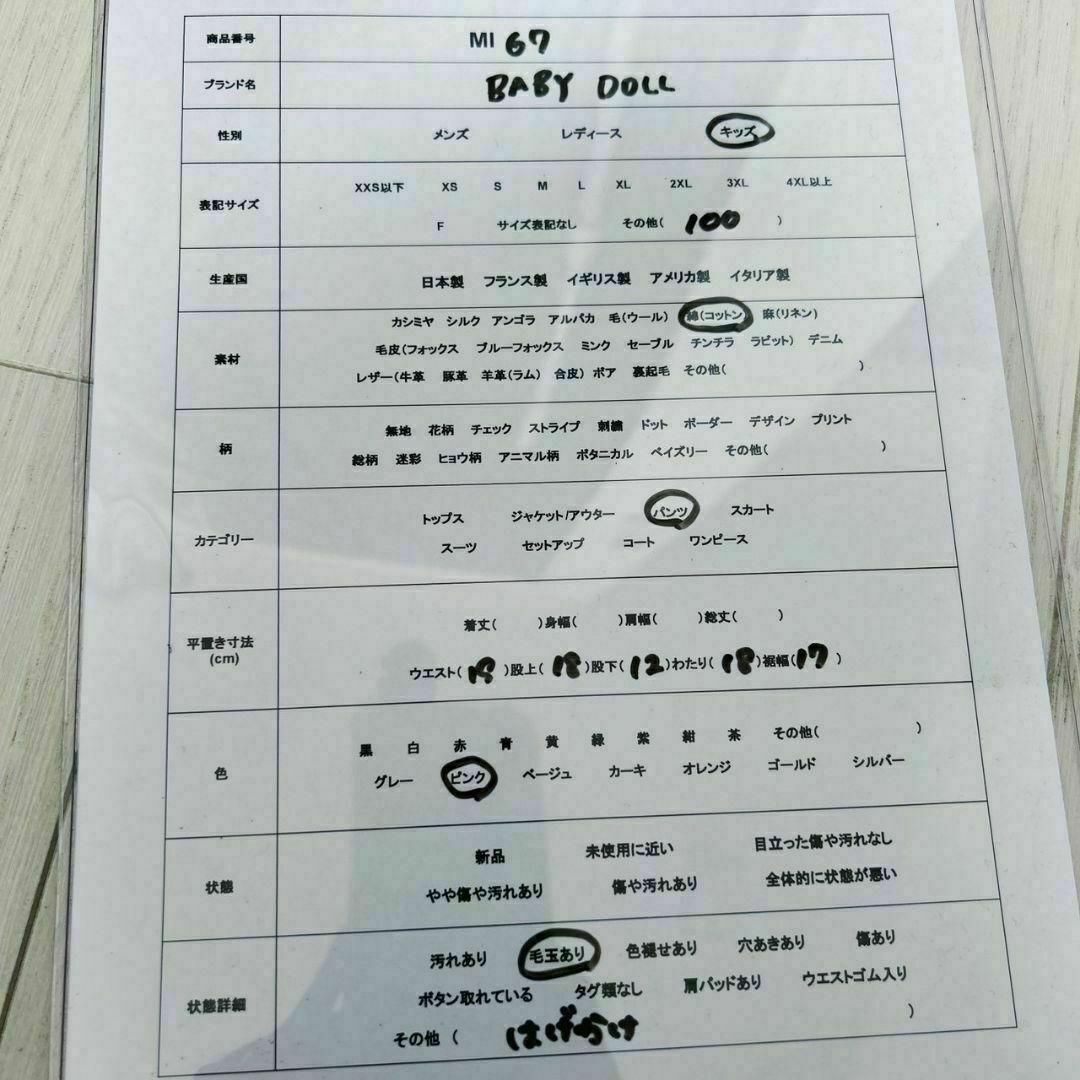 商品番号 MI 67
ブランド名 BABY DOLL
性別 メンズ レディース キッズ
XXS以下 XS S M L XL 2XL 3XL 4XL以上
表記サイズ
F サイズ表記なし その他( 100 )
生産国 日本製 フランス製 イギリス製 アメリカ製 イタリア製
カシミヤ シルク アンゴラ アルパカ 毛(ウール) 綿(コットン) 麻(リネン)
素材 毛皮(フォックス ブルーフォックス ミンク セーブル チンチラ ラビット) デニム
レザー(牛革 豚革 羊革(ラム) 合皮) ボア 裏起毛 その他( )
無地 花柄 チェック ストライプ 刺繍 ドット ボーダー デザイン プリント
柄
総柄 迷彩 ヒョウ柄 アニマル柄 ボタニカル ペイズリー その他( )
トップス ジャケット/アウター パンツ スカート
カテゴリー
スーツ セットアップ コート ワンピース
着丈( )身幅( )肩幅( )総丈( )
平置き寸法
(cm)
ウエスト( )股上( 18 )股下( 12 )わたり( 18 )裾幅( 17 )
黒 白 赤 青 黄 緑 紫 紺 茶 その他( )
色
グレー ピンク ベージュ カーキ オレンジ ゴールド シルバー
新品 未使用に近い 目立った傷や汚れなし
状態
やや傷や汚れあり 傷や汚れあり 全体的に状態が悪い
汚れあり 毛玉あり 色褪せあり 穴あきあり 傷あり
状態詳細 ボタン取れている タグ類なし 肩パッドあり ウエストゴム入り
その他 ( はげかけ )